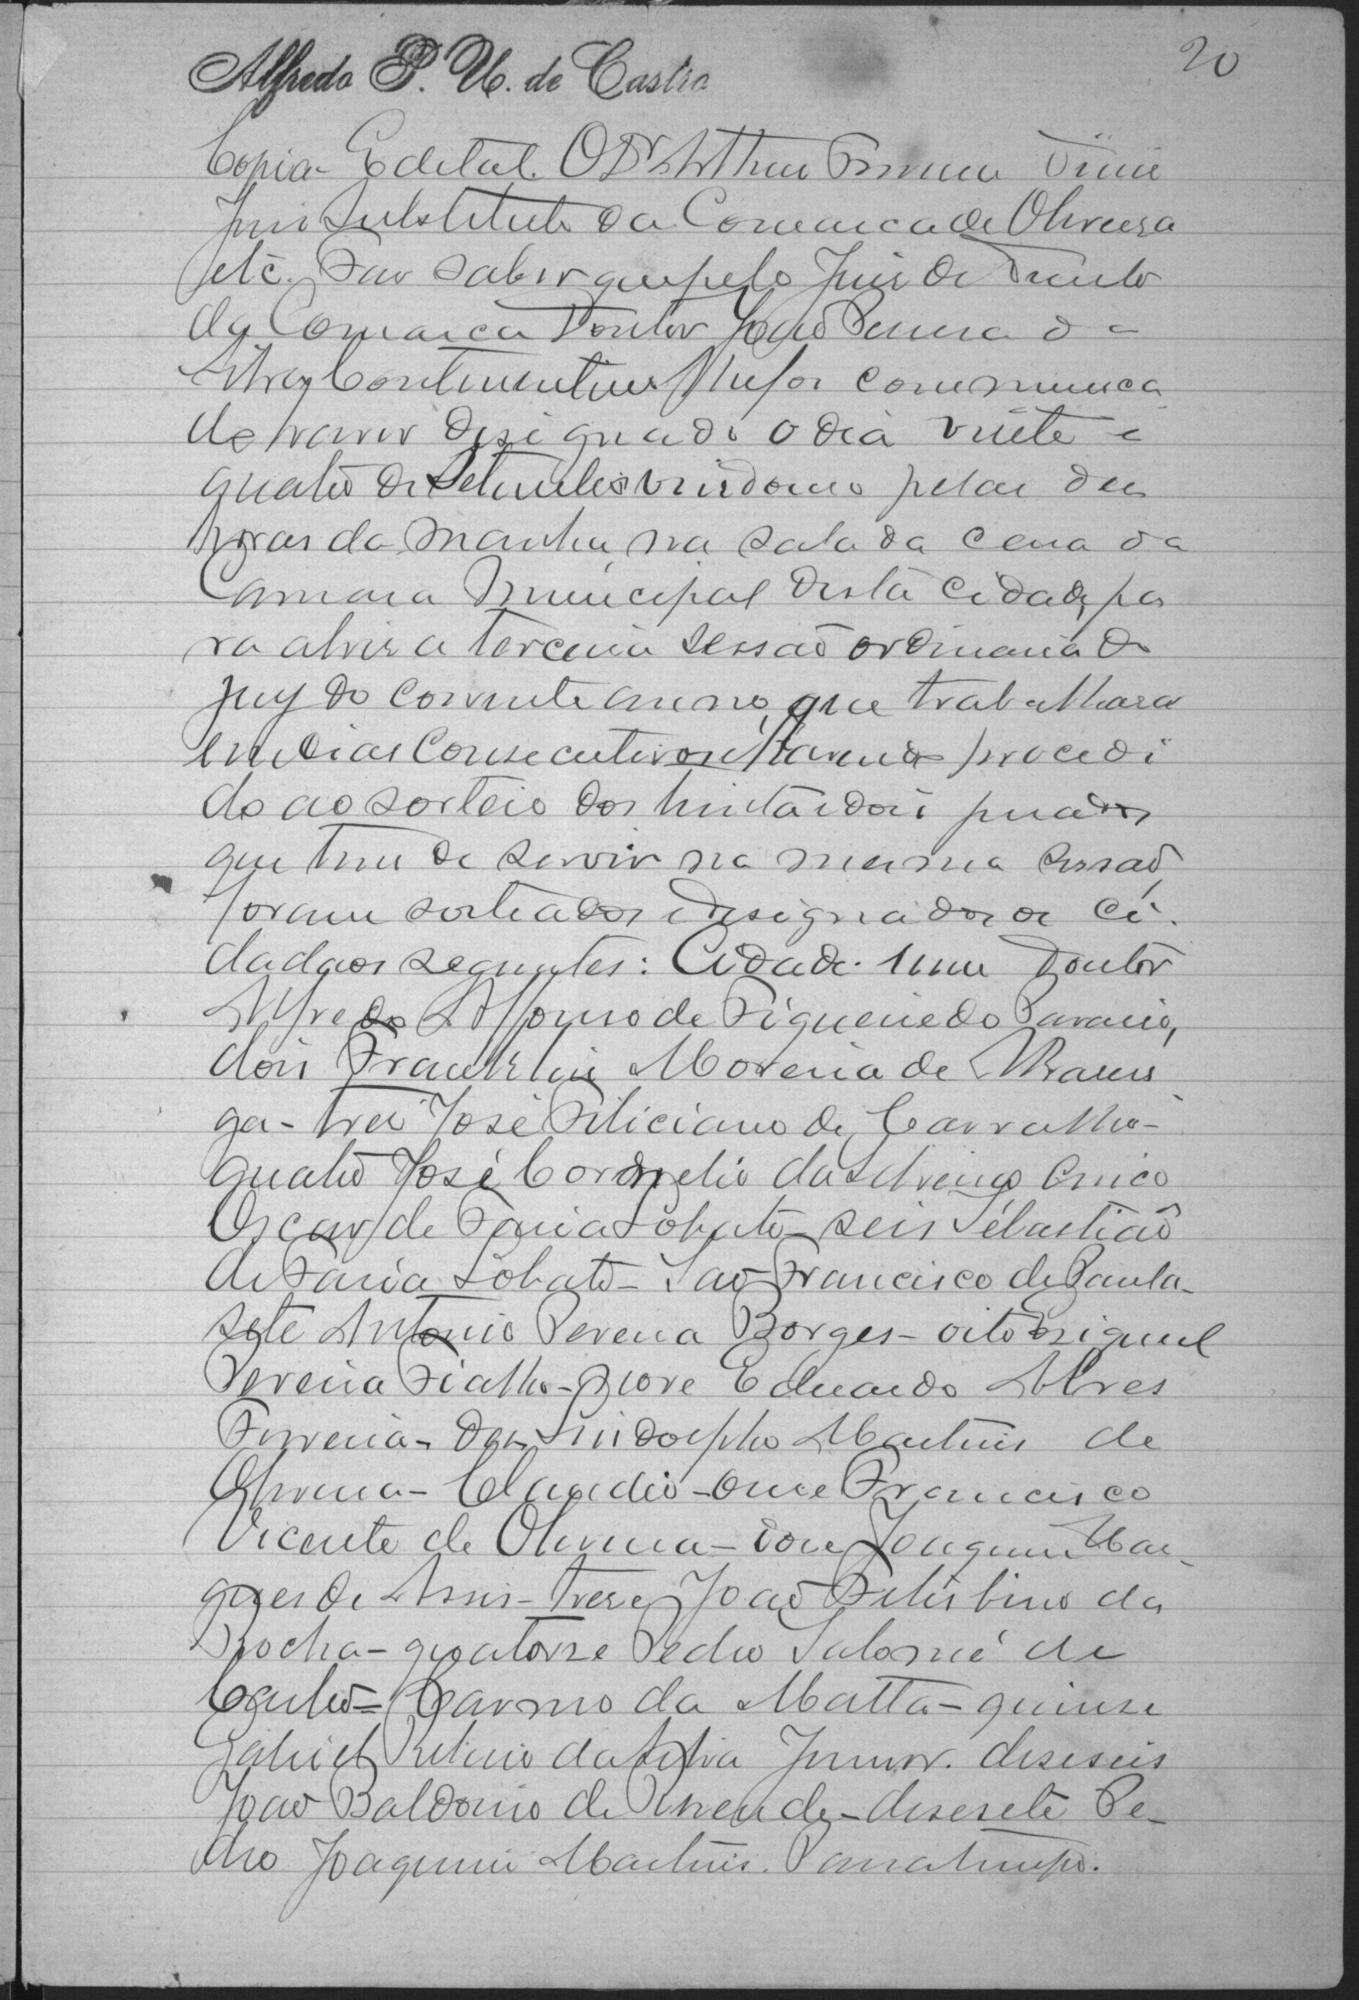 Alfredo P. U. de Castro
20
Copia Edital. O Dr Arthur Ferreira Diniz
Juiz Substituto da Comarca de Oliveira
etc. Faz saber que pelo Juiz de Direito
da Comarca Doutor João Pereira da
Silva Continentino lhe foi communica
do haver designado o dia vinte e
quatro de Setembro vindouro pelas dez
horas da manha na sala da casa da
Camara Municipal desta cidade, pa
ra abrir a terceira sessão ordinaria do
jury do corrente anno, que trabalhara
em dias consecutivos e havendo procedi
do ao sorteio dos trinta e dois jurados
que tem de servir na mesma sessaõ
foram sorteados e designados os ci
dadaos seguntes: Cidade. Um Doutor
Alfredo Affonso de Figueiredo
dois Franklin Moreira de
ga - tres José Feliciano de Carvalho -
quatro José Cornelio da Silveira cinco
Oscar de Faria Lobato - seis Sebastiaõ
de Faria Lobato - Sao Francisco de Paula -
sete Antonio Pereira Borges - oito Miguel
Pereira Fialho - nove Eduardo Alves
Ferreira - dez Lindolpho Martins de
Oliveira - Claudio - onze Francisco
Vicente de Oliveira - doze Joaquim Mar
ques de Assis - treze João Felisbino da
Rocha - quatorze Pedro Salomé de
Castro = Carmo da Matta - quinze
Gabriel Ribeiro da Silva Junior. deseseis
Joao Baldoino de Resende - desesete Pe
dro Joaquim Martins. Passatempo.